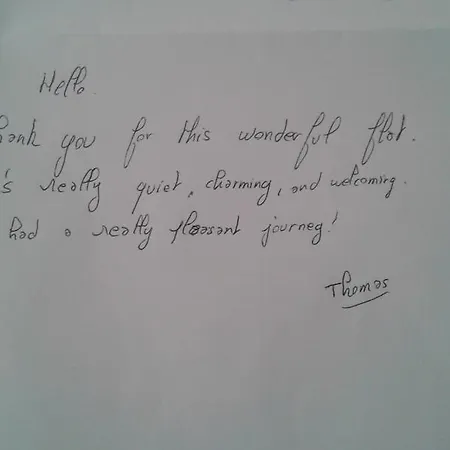 Hello.
hank you for this wonderful flat.
's really quiet, charming, and welcoming.
had a really pleasant journey!
Thomas